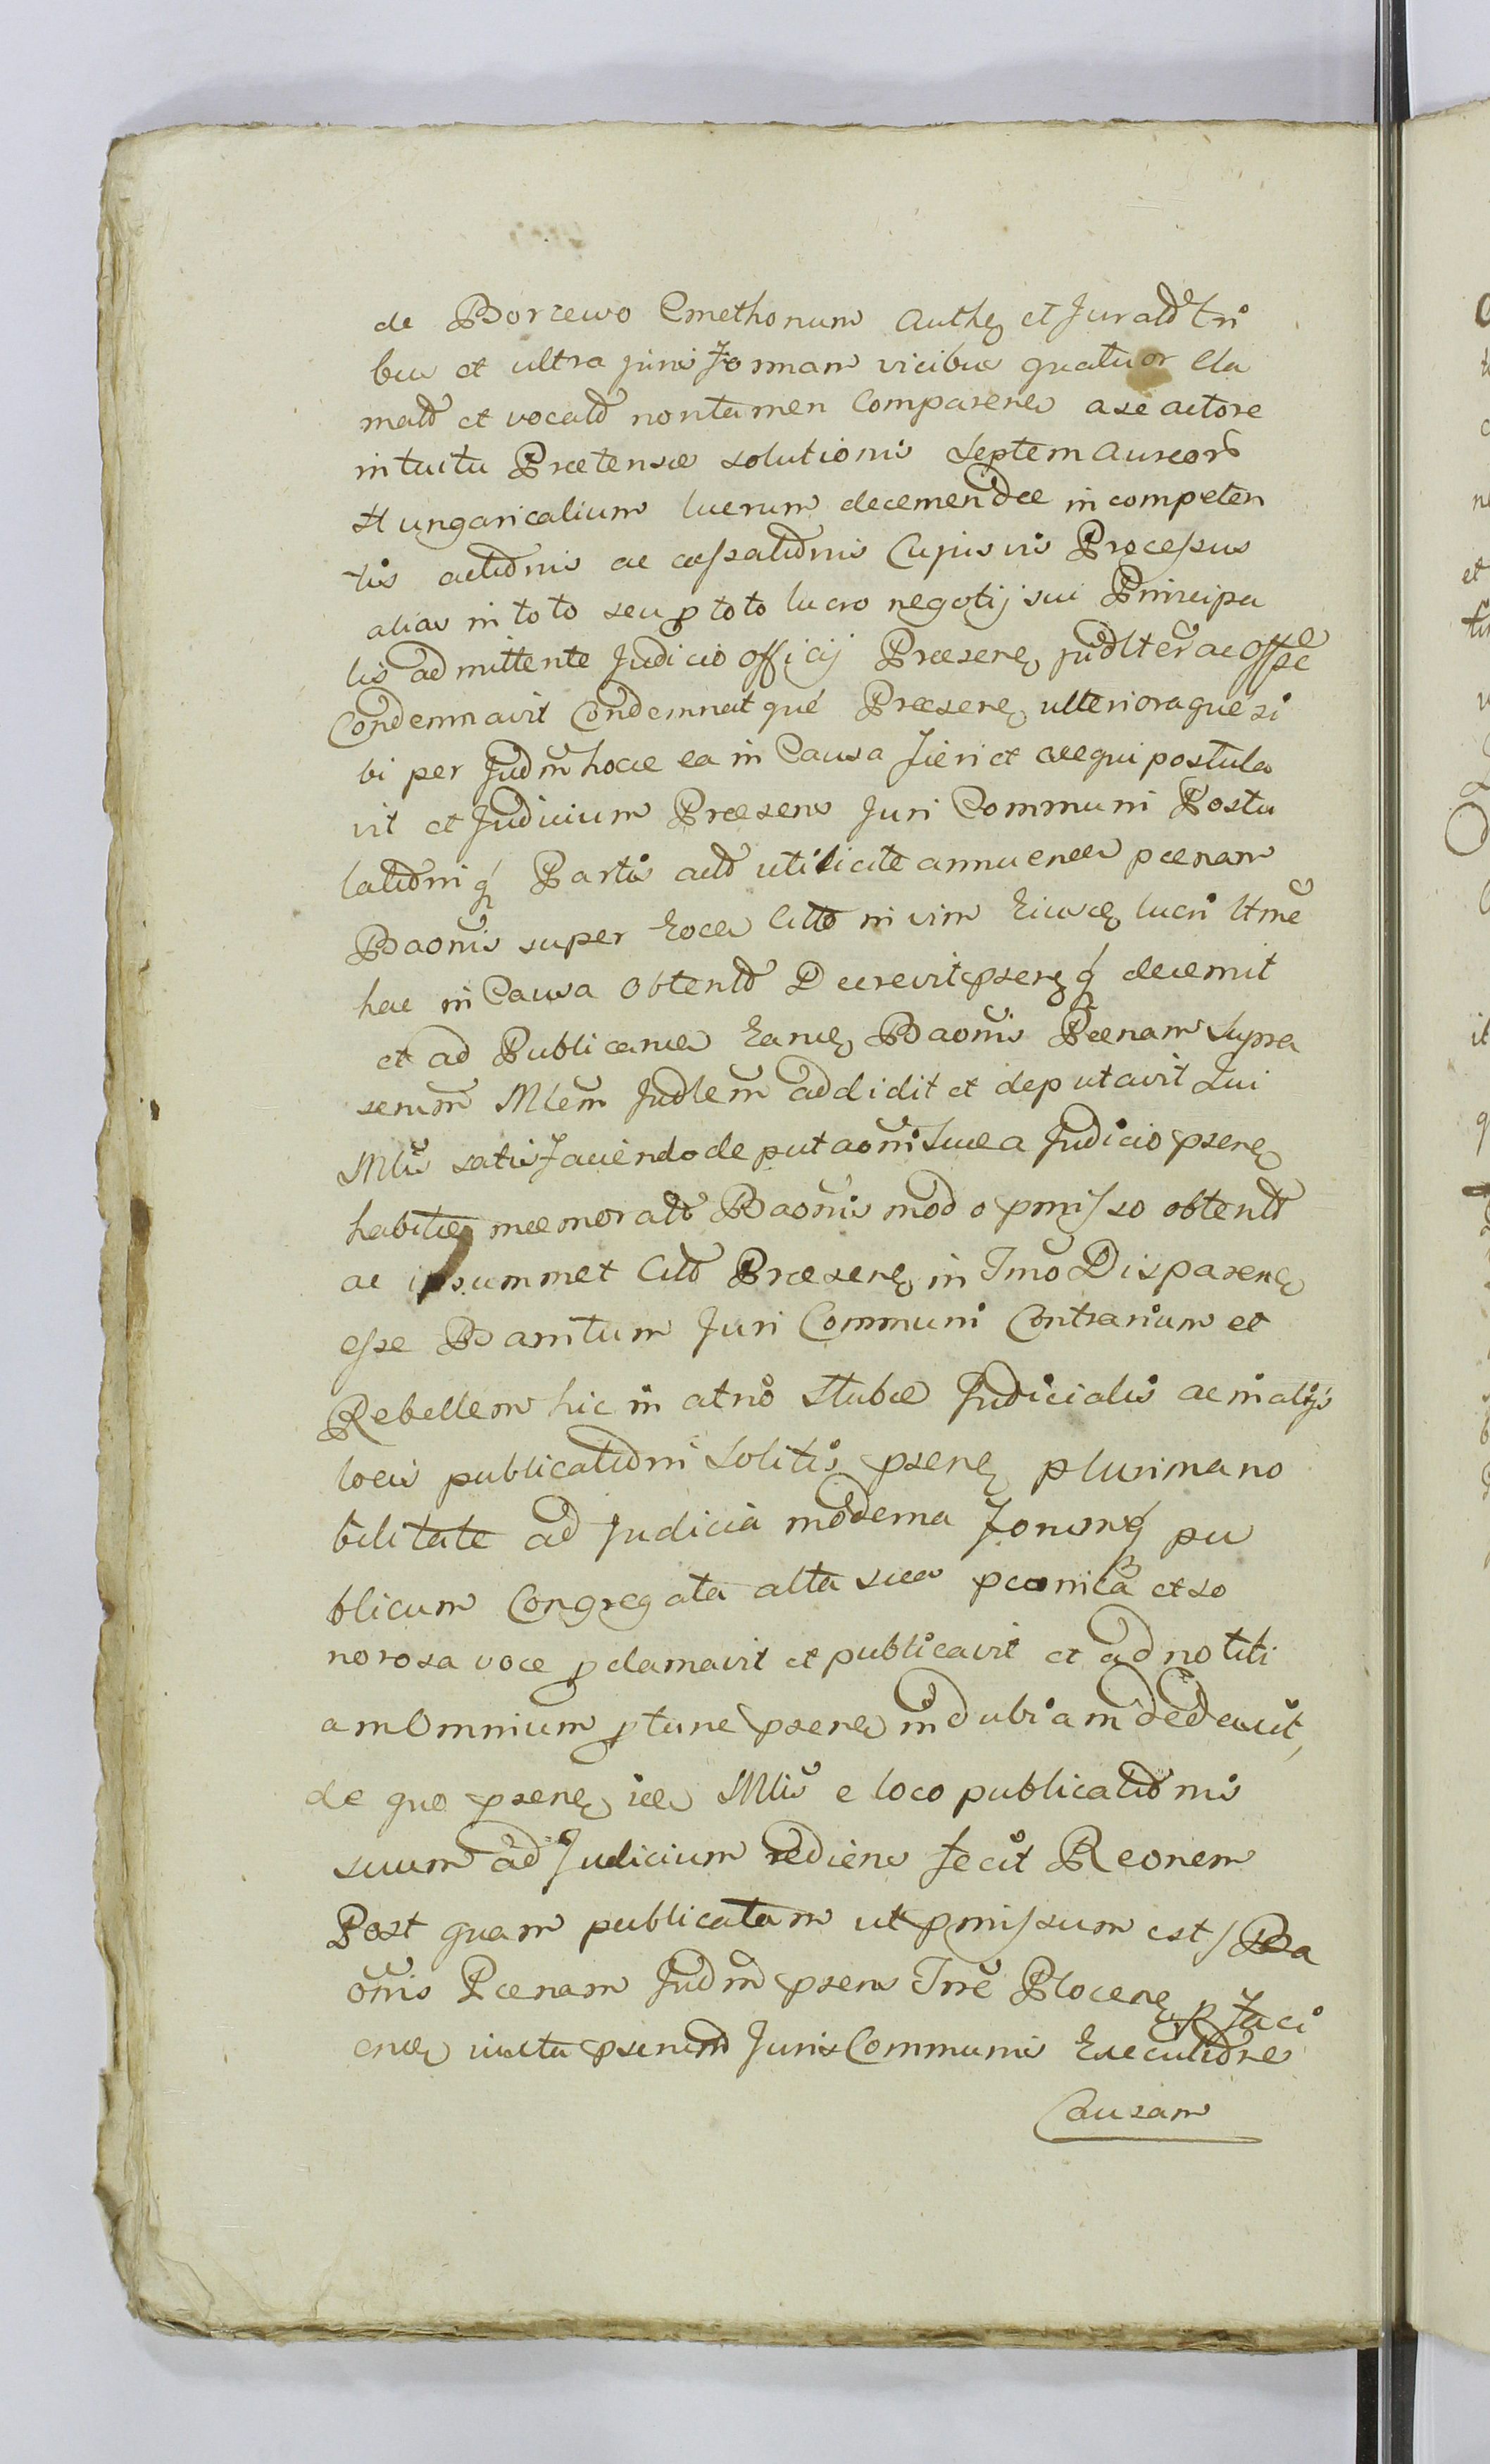 de Borzewo Cmethonum Authẽ et Jurató tri
bus et ultra juris Formam vicibus quatuor Cla
mató et vocató non tamen Comparenẽ a se actore
intuitu Prætensæ solutionis Septem Aureorũ
Hungaricalium lucrum decernendæ incompeten
tis actiõnis ac cassatiõnis Cujusvis Processus
alias in toto seu p toto lucro negotij sui Principa
lis admittente Judicio officij Præsenẽ judlter ac offse
Condemnavit Condemnatqué Præsenẽ, ulterioraque si
bi per Judm hocce ea in Causa Fieri et exequi postula
vit et Judicium Præsens Juri Communi Postu
latiõniq Partis actó utilicite annuenes pænam
Baonis super Eoce Citto in vim Eiuscẽ lucri ltme
hac in Causa Obtentó Decrevit psenẽq decernit
et ad Publicanẽ Eancẽ Baonis Pænam Supra
serium Mlem Judlem addidit et deputavit Qui
Mlis satisfaciendo deputaoni Suæ a Judicio psenẽ
habitæ memorató Baonis modo pmisso obtentó
ac ipsummet Cittó Præsenẽ in Tmo Disparenẽ
esse Banitum Juri Communi Contrarium et
Rebellem hic in atrio Stubæ Judicialis ac in alijs
locis publicatiõni Solitis psenẽ plurima no
bilitate ad Judicia moderna Forumq pu
blicum Congregata alta sua pconica et so
norosa voce pclamavit et publicavit et ad notiti
am Omnium ptunc psenẽ indubiam dedẽcit,
de quo psenẽ ice Mlis e loco publicatiõnis
suum ad Judicium rediens fecit Reonem
Post quam publicatam ut pmissum est / Ba
onis Pænam Judm psens Trre Plocenẽ p Faci
enẽ iuxta psenem Juris Communis Executiõne
Causam